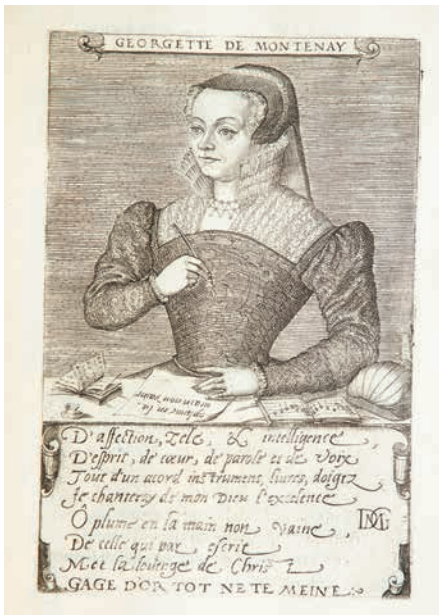 GEORGETTE DE MONTENAY
plume en la
main non vaine
D'affection, Zele, & intelligence,
D'esprit, de cœur, de parole et de Voix
Tout d'un acord instrument, liures, doigtz
Je chanteray de mon Dieu l'excelence
Ô plume en la main non vaine,
De celle qui par escrit
Met la louenge de Christ
GAGE D'OR TOT NE TE MEINE